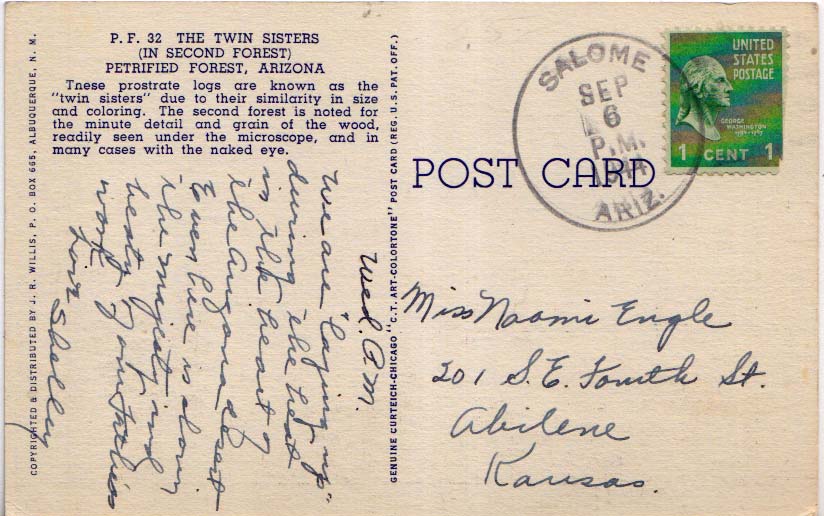 P. F. 32 THE TWIN SISTERS
(IN SECOND FOREST)
PETRIFIED FOREST, ARIZONA
Tnese prostrate logs are known as the
"twin sisters" due to their similarity in size
and coloring. The second forest is noted for
the minute detail and grain of the wood,
readily seen under the microscope, and in
many cases with the naked eye.
COPYRIGHTED & DISTRIBUTED BY J. R. WILLIS, P. O. BOX 665, ALBUQUERQUE, N. M.
GENUINE CURTEICH-CHICAGO "C.T. ART-COLORTONE" POST CARD (REG. U. S. PAT. OFF.)
Wed. P.M.
We are "laying up"
during the heat
in the heart of
the Arizona desert
Even here is shown
the majesty and
beauty of our Father's
work
Love Shelley
POST CARD
SALOME
SEP
6
P.M.
ARIZ.
UNITED
STATES
POSTAGE
GEORGE
WASHINGTON
1 CENT 1
Miss Naomi Engle
201 S.E. Fourth St.
Abilene
Kansas.